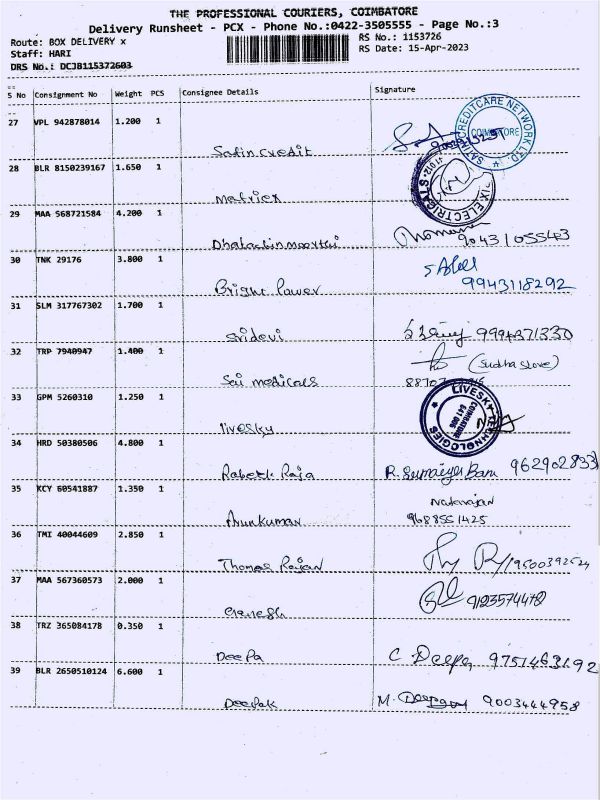 THE PROFESSIONAL COURIERS, COIMBATORE
Delivery Runsheet - PCX - Phone No.:0422-3505555 - Page No.:3
Route: BOX DELIVERY x
RS No.: 1153726
Staff: HARI
RS Date: 15-Apr-2023
DRS No.: DCJB115372603
S No Consignment No Weight PCS Consignee Details Signature
27 VPL 942878014 1.200 1
SATHCREDITCARE NETWORK LTD. COIMBATORE
Satin credit
28 BLR 8150239167 1.650 1
IX ELECTRICALS
Matrix
29 MAA 568721584 4.200 1
Dhatchinamoorthi 9043105543
30 TNK 29176 3.800 1
Bright Power 9943118292
31 SLM 317767302 1.700 1
sridevi 9994371330
32 TRP 7940947 1.400 1
(sudha stove)
Sai medicals
33 GPM 5260310 1.250 1
LIVESKY TECHNOLOGIES COIMBATORE
livesky
34 HRD 50380506 4.800 1
Raja R. Sumaiya Banu 962902833
35 KCY 60541887 1.350 1
Natarajan
Arunkumar 9688551425
36 TMI 40044609 2.850 1
Thomas Rajan
37 MAA 567360573 2.000 1
Ganesh
38 TRZ 365084178 0.350 1
Deepa C Deepa 9751463192
39 BLR 2650510124 6.600 1
Deepak M. 9003444958